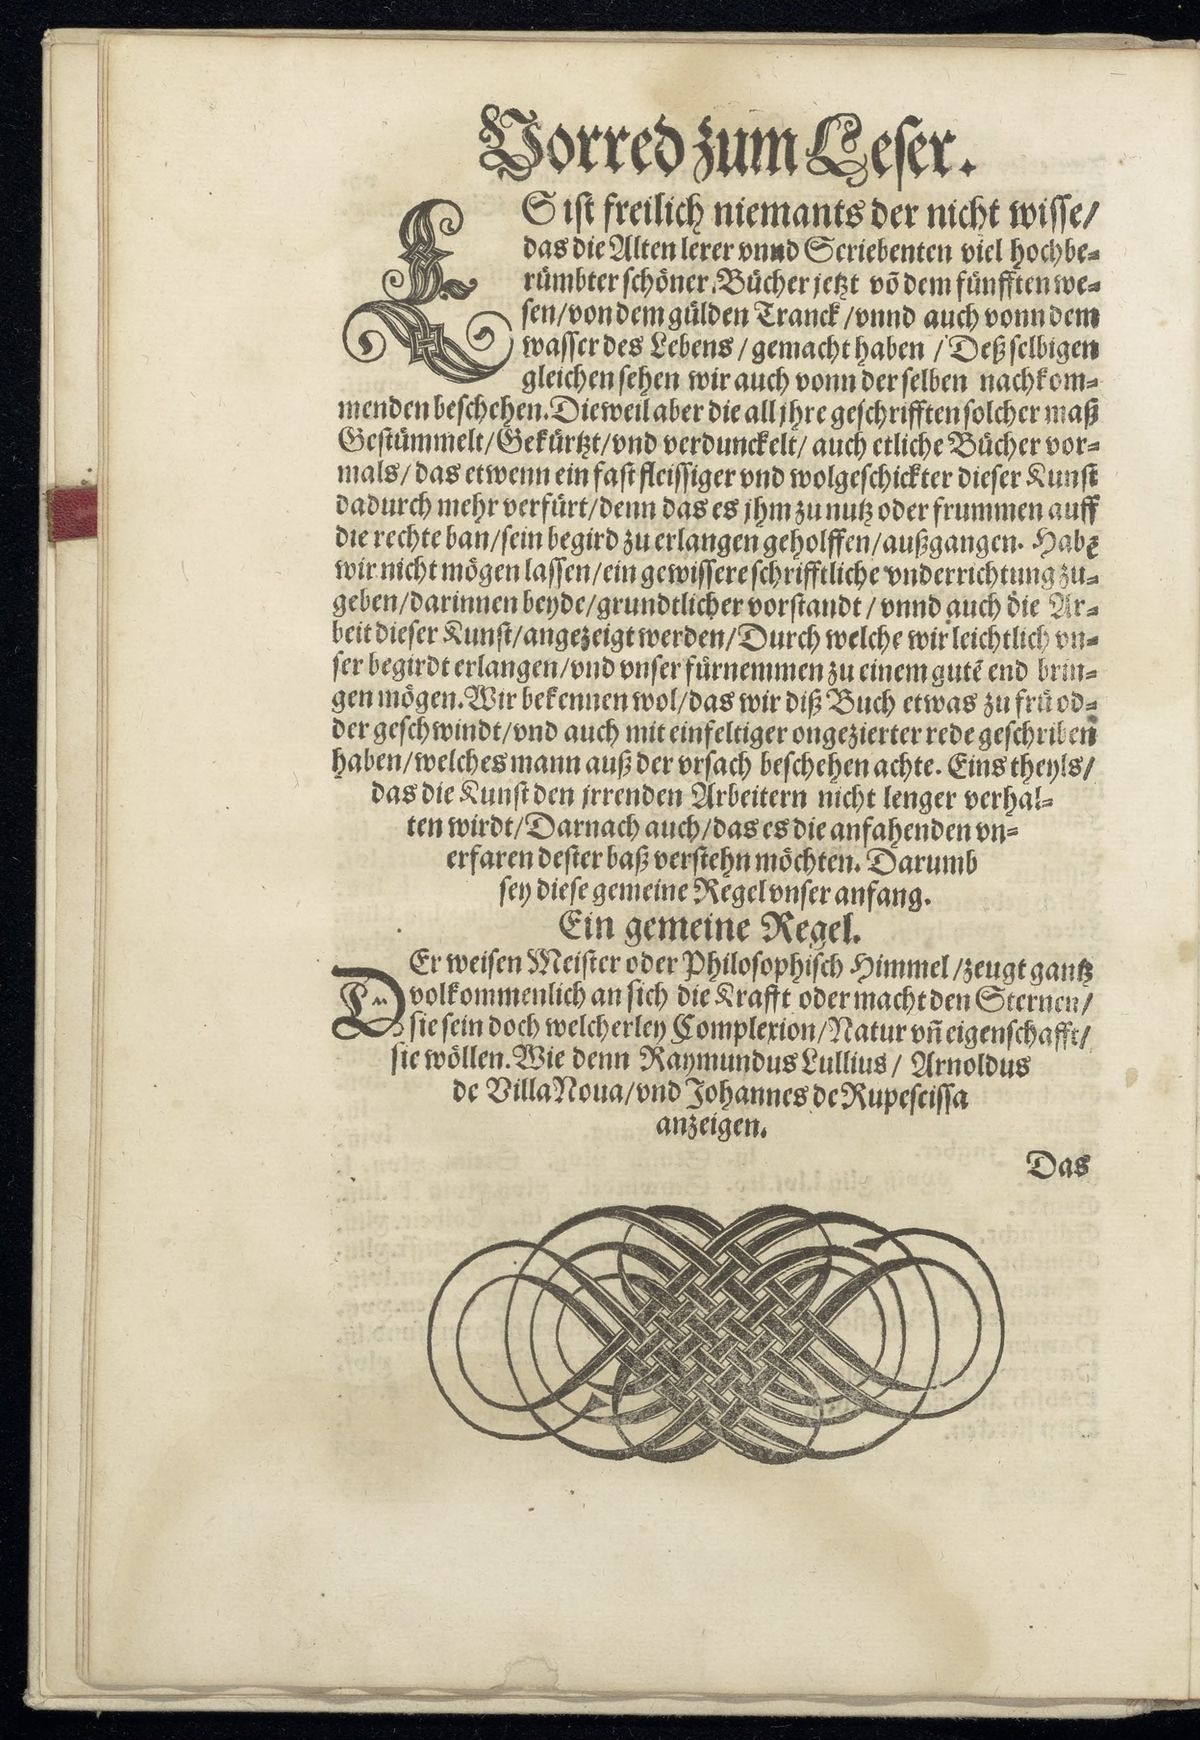 Vorred zum Leser.
ES ist freilich niemants der nicht wisse/
das die Alten lerer vnnd Scriebenten viel hochbe⸗
rümbter schöner Bücher jetzt võ dem fünfften we⸗
sen/von dem gülden Tranck/vnnd auch vonn dem
wasser des Lebens/gemacht haben/Deß selbigen
gleichen sehen wir auch vonn derselben nachkom⸗
menden beschehen. Dieweil aber die all jhre geschrifften solcher maß
Gestümmelt/Gekürtzt/vnd verdunckelt/auch etliche Bücher vor⸗
mals/das etwenn ein fast fleissiger vnd wolgeschickter dieser Kunst
dadurch mehr verfürt/denn das es jhm zu nutz oder frummen auff
die rechte ban/sein begird zu erlangen geholffen/außgangen. Habẽ
wir nicht mögen lassen/ein gewissere schrifftliche vnderrichtung zu⸗
geben/darinnen beyde/grundtlicher vorstandt/vnnd auch die Ar⸗
beit dieser Kunst/angezeigt werden/Durch welche wir leichtlich vn⸗
ser begirdt erlangen/vnd vnser fürnemmen zu einem gutẽ end brin⸗
gen mögen. Wir bekennen wol/das wir diß Buch etwas zu frü od⸗
der geschwindt/vnd auch mit einfeltiger ongezierter rede geschriben
haben/welches mann auß der vrsach beschehen achte. Eins theyls/
das die Kunst den jrrenden Arbeitern nicht lenger verhal⸗
ten wirdt/Darnach auch/das es die anfahenden vn⸗
erfaren dester baß verstehn möchten. Darumb
sey diese gemeine Regel vnser anfang.
Ein gemeine Regel.
DEr weisen Meister oder Philosophisch Himmel/zeugt gantz
volkommenlich an sich die Krafft oder macht den Sternen/
sie sein doch welcherley Complexion/Natur vñ eigenschafft/
sie wöllen. Wie denn Raymundus Lullius/Arnoldus
de Villa Noua/vnd Johannes de Rupescissa
anzeigen.
Das